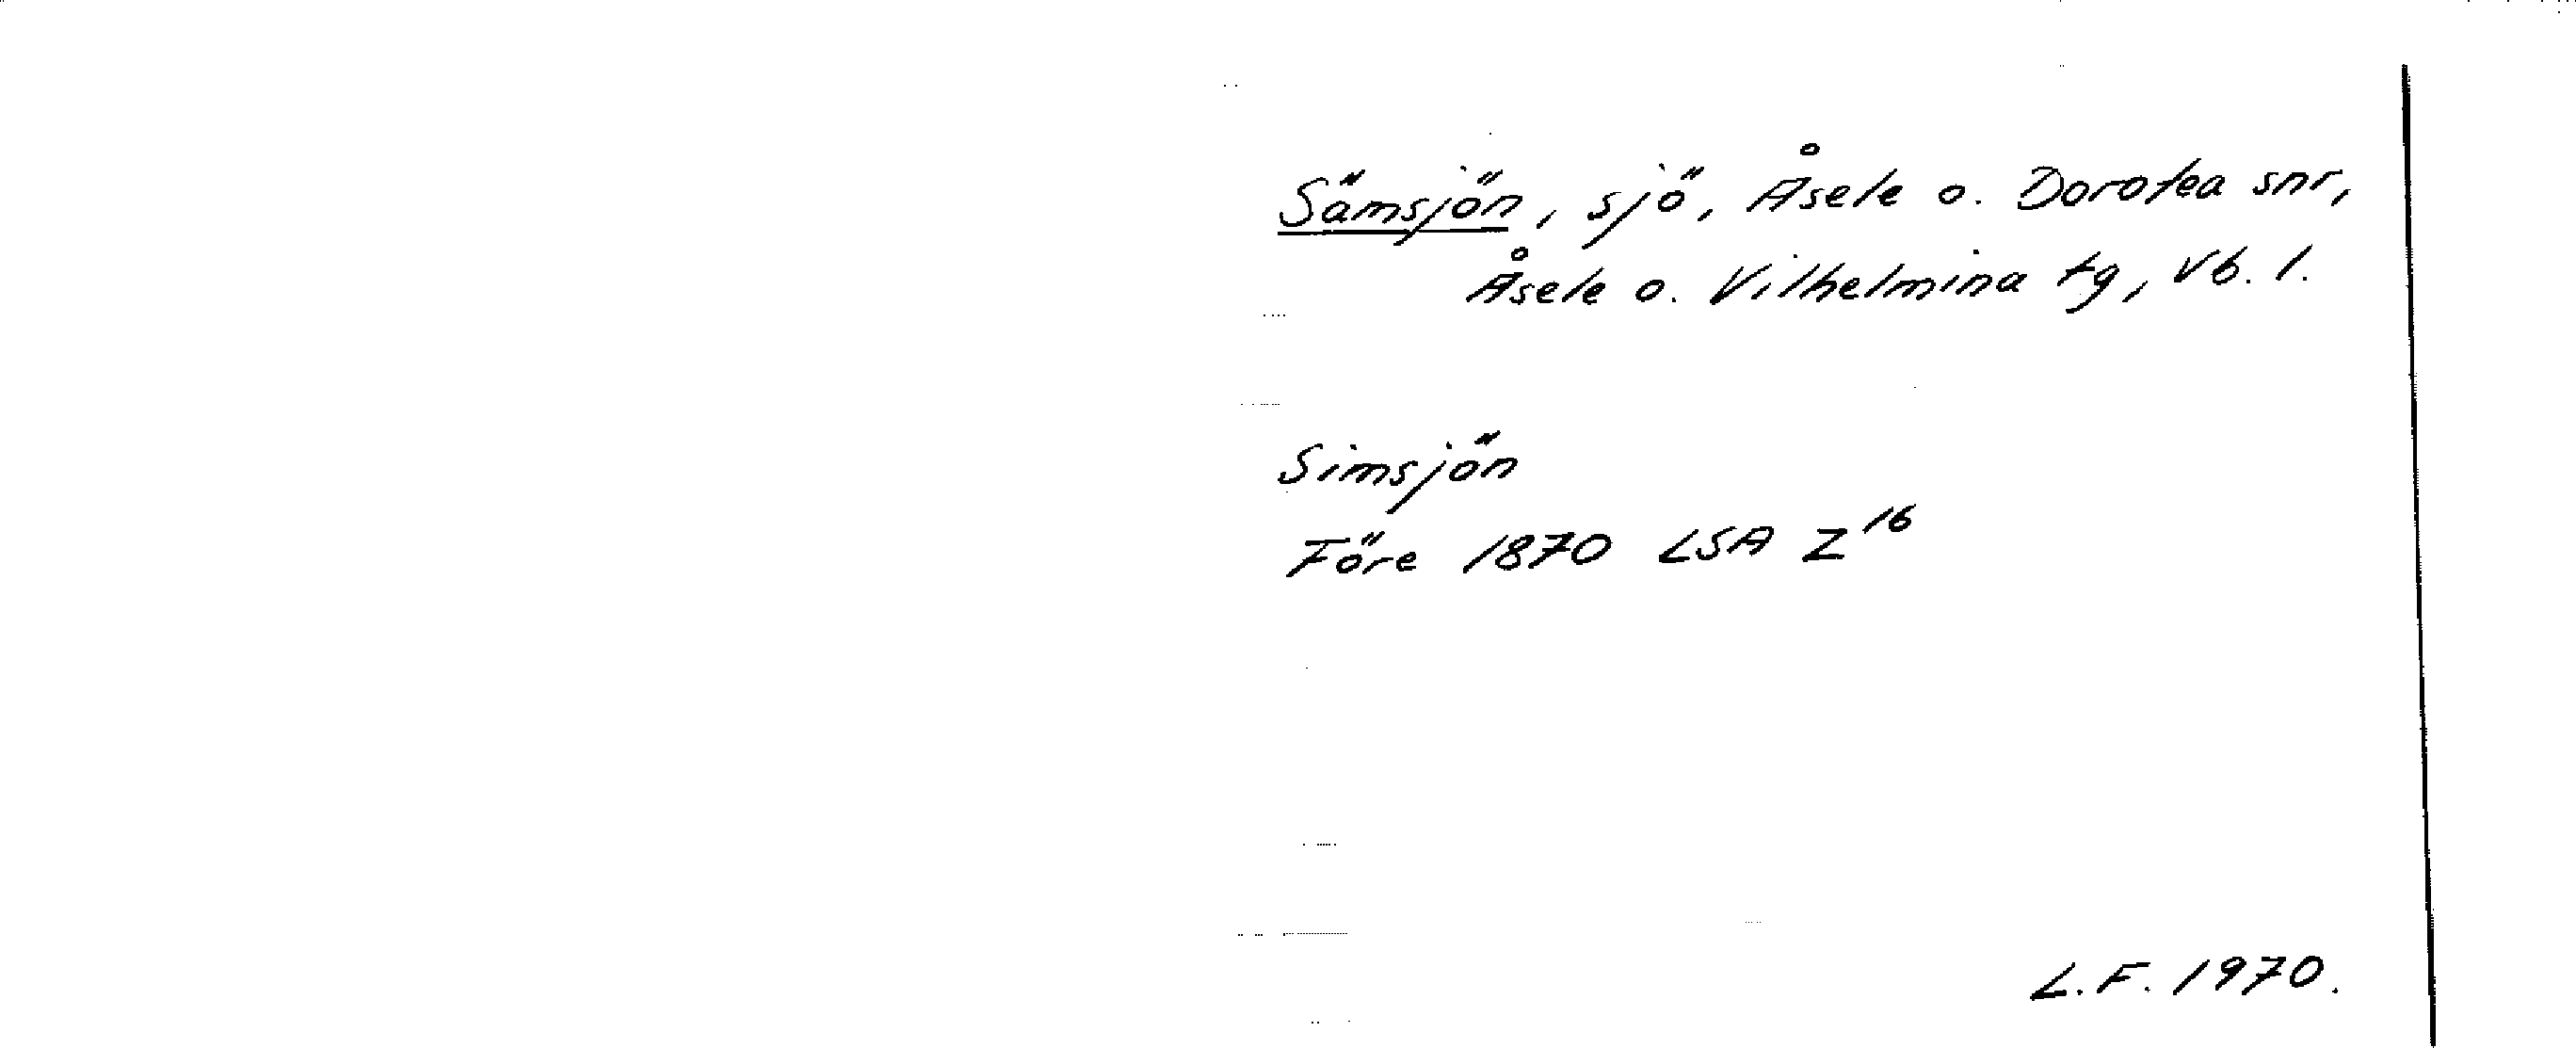 Sämsjön, sjö, Åsele o. Dorotea snr,
Åsele o. Vilhelmina tg, Vb. l.
Simsjön
Före 1870 LSA Z¹⁶
L.F. 1970.